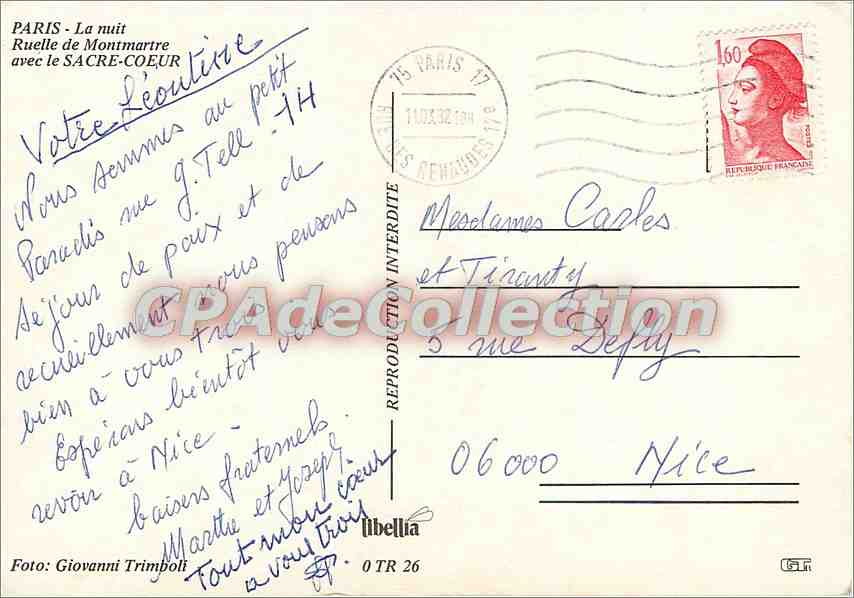 PARIS - La nuit
Ruelle de Montmartre
avec le SACRE-COEUR
Votre Léontine
Nous sommes au petit
Paradis rue G. Tell - 14
séjour de paix et de
recueillement nous pensons
bien à vous trois
Espérons bientôt vous
revoir à Nice -
baisers fraternels.
Marthe et Joseph
Tout mon coeur
a vous trois
REPRODUCTION INTERDITE
75 PARIS 17
RUE DES RENAUDES 17e
1,60
POSTES
REPUBLIQUE FRANÇAISE
Mesdames Carles
et Tiranty
5 rue Défly
06000 Nice
CPAdeCollection
libellia
Foto: Giovanni Trimboli
0 TR 26